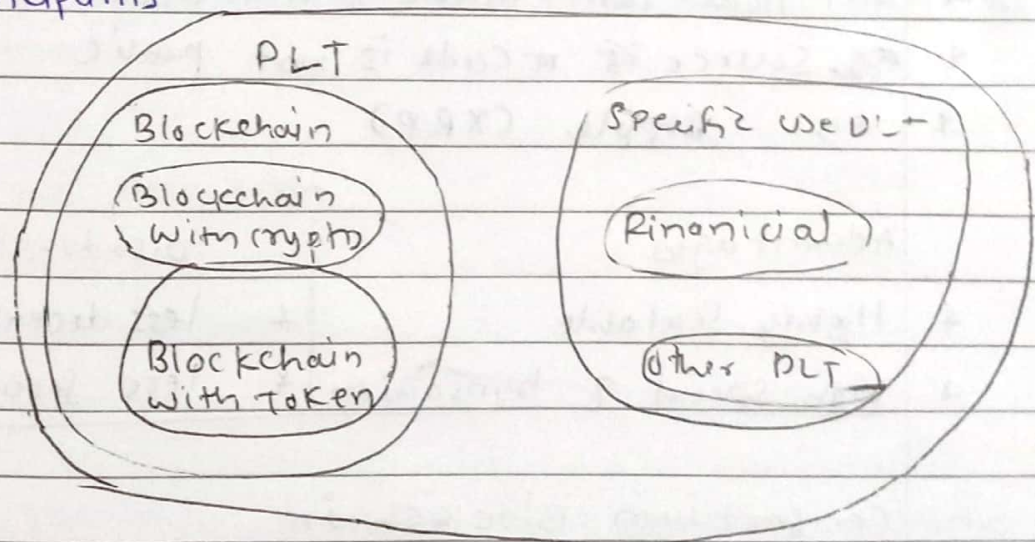 DLT
Blockchain
Blockchain
with crypto
Blockchain
with Token
Specific use DLT
Finanicial
Other DLT